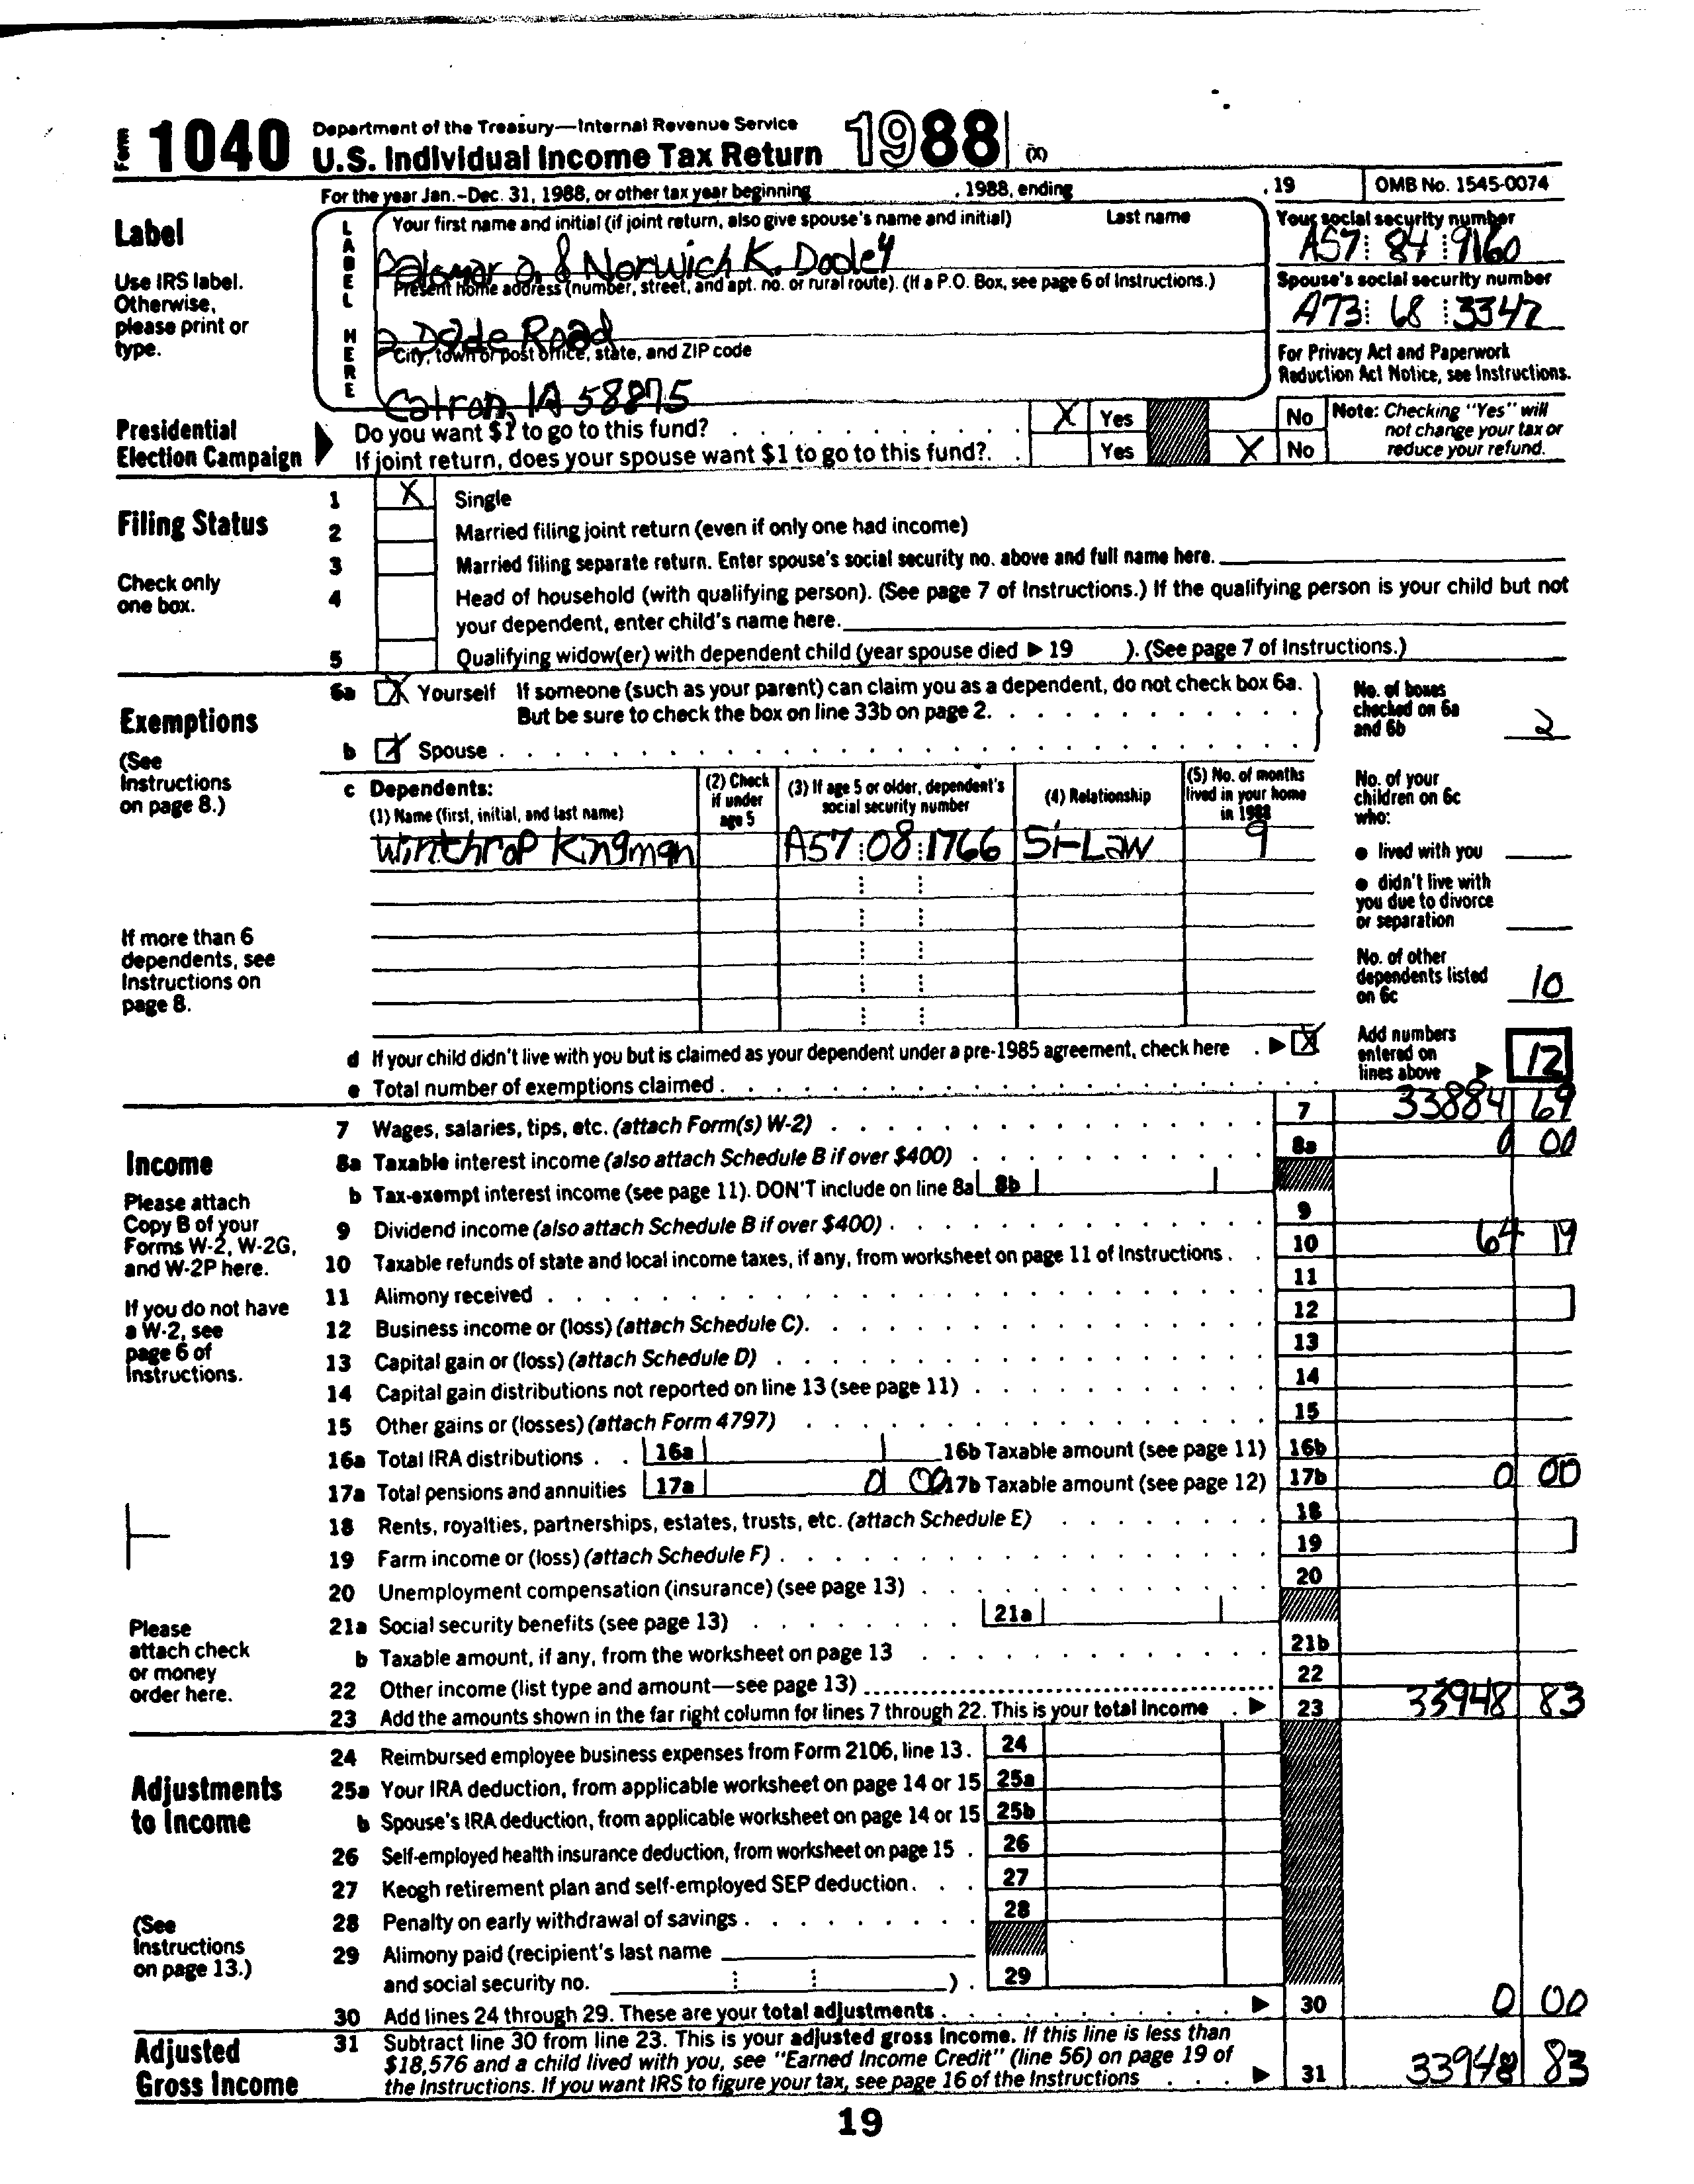 Form 1040 Department of the Treasury—Internal Revenue Service
U.S. Individual Income Tax Return 1988 (X)
For the year Jan.-Dec. 31, 1988, or other tax year beginning , 1988, ending , 19 OMB No. 1545-0074
Label
Use IRS label.
Otherwise,
please print or
type.
LABEL HERE
Your first name and initial (if joint return, also give spouse's name and initial) Last name
Palomar & Norwich K. Dooley
Present home address (number, street, and apt. no. or rural route). (If a P.O. Box, see page 6 of Instructions.)
2 Dade Road
City, town or post office, state, and ZIP code
Catron, IA 58875
Your social security number
A57 84 9160
Spouse's social security number
A73 68 3347
For Privacy Act and Paperwork
Reduction Act Notice, see Instructions.
Presidential
Election Campaign
Do you want $1 to go to this fund? X Yes No
If joint return, does your spouse want $1 to go to this fund? Yes X No
Note: Checking "Yes" will
not change your tax or
reduce your refund.
Filing Status
Check only
one box.
1 X Single
2 Married filing joint return (even if only one had income)
3 Married filing separate return. Enter spouse's social security no. above and full name here.
4 Head of household (with qualifying person). (See page 7 of Instructions.) If the qualifying person is your child but not
your dependent, enter child's name here.
5 Qualifying widow(er) with dependent child (year spouse died ▶ 19 ). (See page 7 of Instructions.)
Exemptions
(See
Instructions
on page 8.)
6a X Yourself If someone (such as your parent) can claim you as a dependent, do not check box 6a.
But be sure to check the box on line 33b on page 2.
b X Spouse
No. of boxes
checked on 6a
and 6b 2
c Dependents:
(1) Name (first, initial, and last name)
(2) Check
if under
age 5
(3) If age 5 or older, dependent's
social security number
(4) Relationship
(5) No. of months
lived in your home
in 1988
Winthrop Kingman A57 08 1766 Si-Law 9
If more than 6
dependents, see
Instructions on
page 8.
No. of your
children on 6c
who:
● lived with you
● didn't live with
you due to divorce
or separation
No. of other
dependents listed
on 6c 10
d If your child didn't live with you but is claimed as your dependent under a pre-1985 agreement, check here ▶ X
e Total number of exemptions claimed
Add numbers
entered on
lines above ▶ 12
Income
Please attach
Copy B of your
Forms W-2, W-2G,
and W-2P here.
If you do not have
a W-2, see
page 6 of
Instructions.
7 Wages, salaries, tips, etc. (attach Form(s) W-2) 7 33884 69
8a Taxable interest income (also attach Schedule B if over $400) 8a 0 00
b Tax-exempt interest income (see page 11). DON'T include on line 8a 8b
9 Dividend income (also attach Schedule B if over $400) 9
10 Taxable refunds of state and local income taxes, if any, from worksheet on page 11 of Instructions 10 64 14
11 Alimony received 11
12 Business income or (loss) (attach Schedule C) 12
13 Capital gain or (loss) (attach Schedule D) 13
14 Capital gain distributions not reported on line 13 (see page 11) 14
15 Other gains or (losses) (attach Form 4797) 15
16a Total IRA distributions 16a 16b Taxable amount (see page 11) 16b
17a Total pensions and annuities 17a 0 00 17b Taxable amount (see page 12) 17b 0 00
18 Rents, royalties, partnerships, estates, trusts, etc. (attach Schedule E) 18
19 Farm income or (loss) (attach Schedule F) 19
20 Unemployment compensation (insurance) (see page 13) 20
21a Social security benefits (see page 13) 21a
b Taxable amount, if any, from the worksheet on page 13 21b
22 Other income (list type and amount—see page 13) 22
23 Add the amounts shown in the far right column for lines 7 through 22. This is your total income ▶ 23 33948 83
Please
attach check
or money
order here.
Adjustments
to Income
(See
Instructions
on page 13.)
24 Reimbursed employee business expenses from Form 2106, line 13. 24
25a Your IRA deduction, from applicable worksheet on page 14 or 15 25a
b Spouse's IRA deduction, from applicable worksheet on page 14 or 15 25b
26 Self-employed health insurance deduction, from worksheet on page 15 26
27 Keogh retirement plan and self-employed SEP deduction 27
28 Penalty on early withdrawal of savings 28
29 Alimony paid (recipient's last name
and social security no. ) 29
30 Add lines 24 through 29. These are your total adjustments ▶ 30 0 00
Adjusted
Gross Income
31 Subtract line 30 from line 23. This is your adjusted gross income. If this line is less than
$18,576 and a child lived with you, see "Earned Income Credit" (line 56) on page 19 of
the Instructions. If you want IRS to figure your tax, see page 16 of the Instructions ▶ 31 33948 83
19